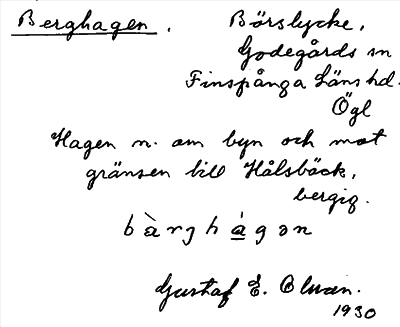 Berghagen. Börslycke,
Godegårds sn
Finspånga läns hd.
Ögl
Hagen n. om byn och mot
gränsen till Hålsbäck,
bergig.
bàrghágən
Gustaf E.
1930